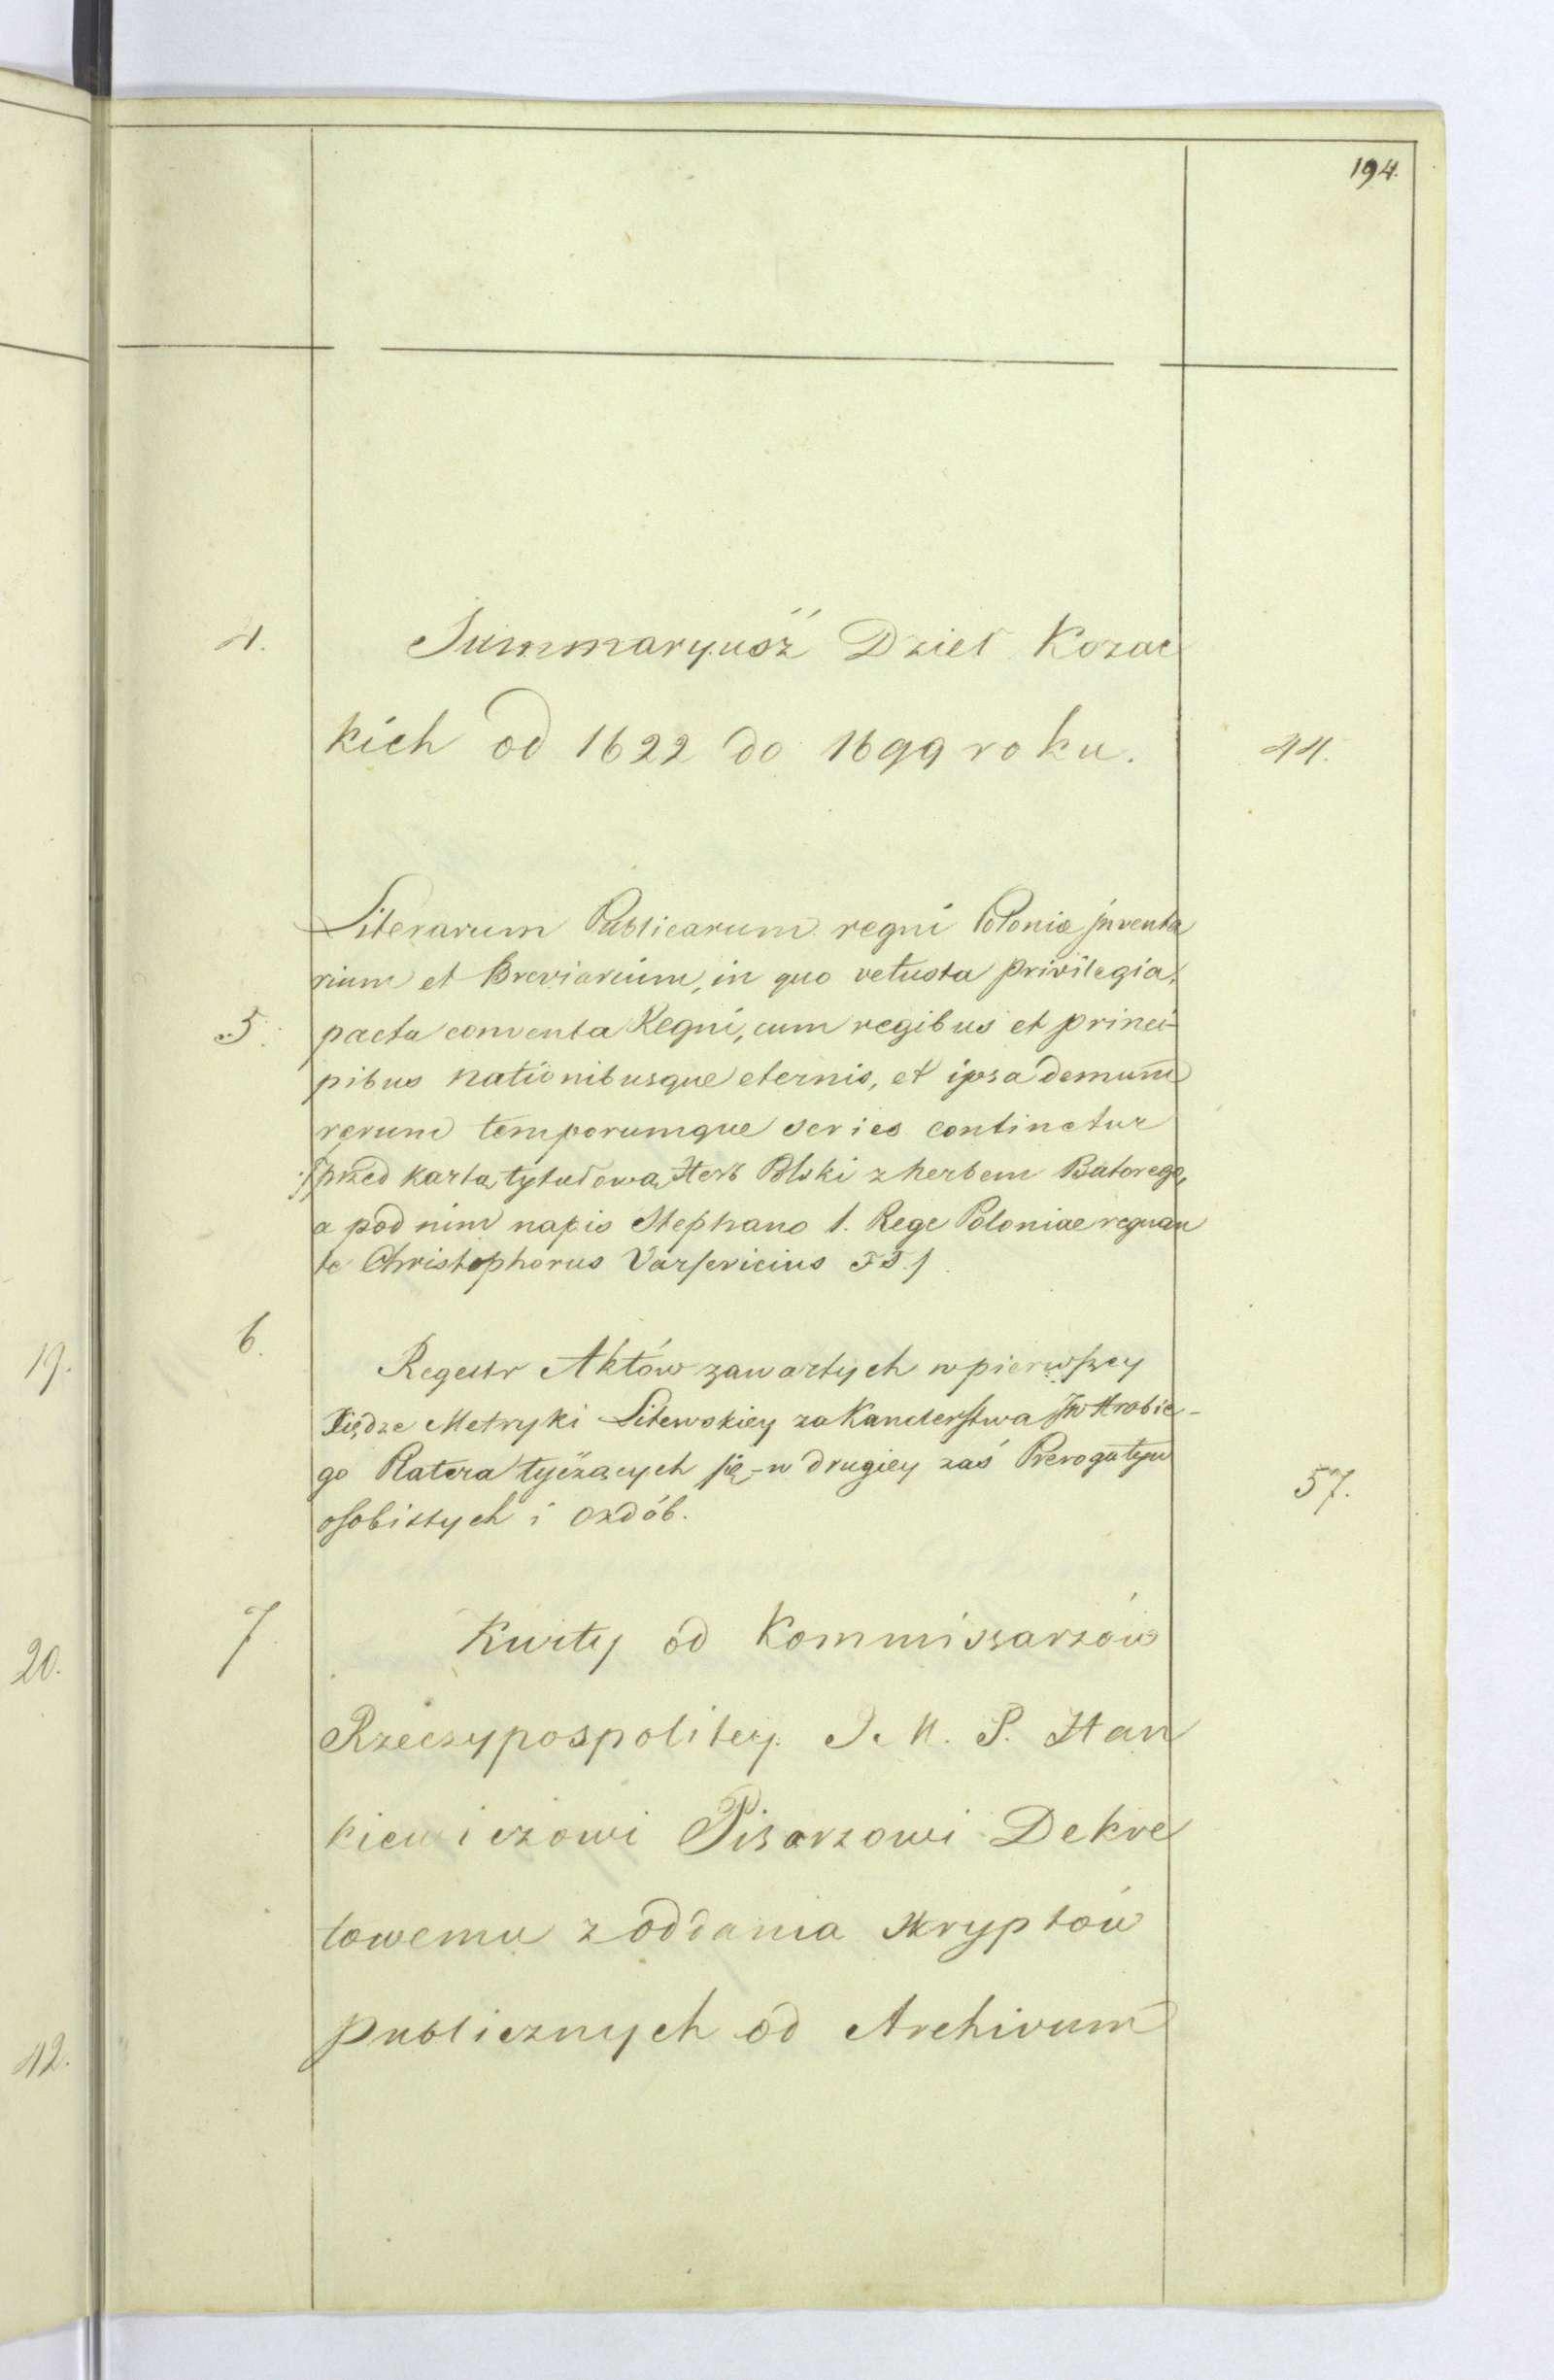 194.
4. Summaryusz Dzieł Kozac
kich od 1622 do 1699 roku. 44.
Literarum Publicarum regni Polonie jnventa
rium et Breviarium, in quo vetusta privilegia,
5. pacta conventa Regni, cum regibus et princi-
pibus nationibusque eternis, et ipsa demum
rerum temporumque series continetur
/przed kartą tytułową Herb Polski z herbem Batorego,
a pod nim napis Stephano 1. Rege Poloniae regnan
te Christophorus Varsevicius FF./
6.
19. Regestr Aktów zawartych w pierwszey
Xiędze Metryki Litewskiey za Kanclerstwa JW Hrabie-
go Platera tyczących się - w drugiey zaś Prerogatyw
57.
osobistych i ozdób.
7 Kwity od Kommissarzów
20.
Rzeczypospolitey J. M. P. Han
kiewiczowi Pisarzowi Dekre
towemu z oddania skryptów
publicznych od Archivum
12.